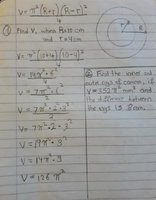 V = π²(R+r)(R-r)²
4
① Find V, when R=10 cm
and r=4cm
V = π²(10+4)(10-4)²
4
= 14π² × 6²
4
= 7π² × 6²
2
V = 7π² × 2² × 3²
2
V = 7π² × 2 × 3²
V = 14π² × 3²
V = 14π² × 9
V = 126π²
② Find the inner and
outer radii of canon, if
V = 352π² mm³ and
the difference between
the radii is 8cm